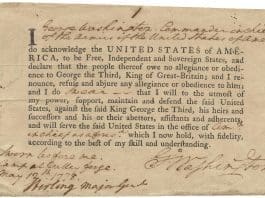 I George Washington Commander in chief
of the armies of the United States of America
do acknowledge the UNITED STATES of AME-
RICA, to be Free, Independent and Sovereign States, and
declare that the people thereof owe no allegiance or obedi-
ence to George the Third, King of Great-Britain; and I re-
nounce, refuse and abjure any allegiance or obedience to him;
and I do Swear that I will to the utmost of
my power, support, maintain and defend the said United
States, against the said King George the Third, his heirs and
successors and his or their abettors, assistants and adherents,
and will serve the said United States in the office of Com
in chief which I now hold, with fidelity,
according to the best of my skill and understanding.
Sworn before me
Camp at Valley Forge
May 12th 1778
Stirling Major Genl
G Washington